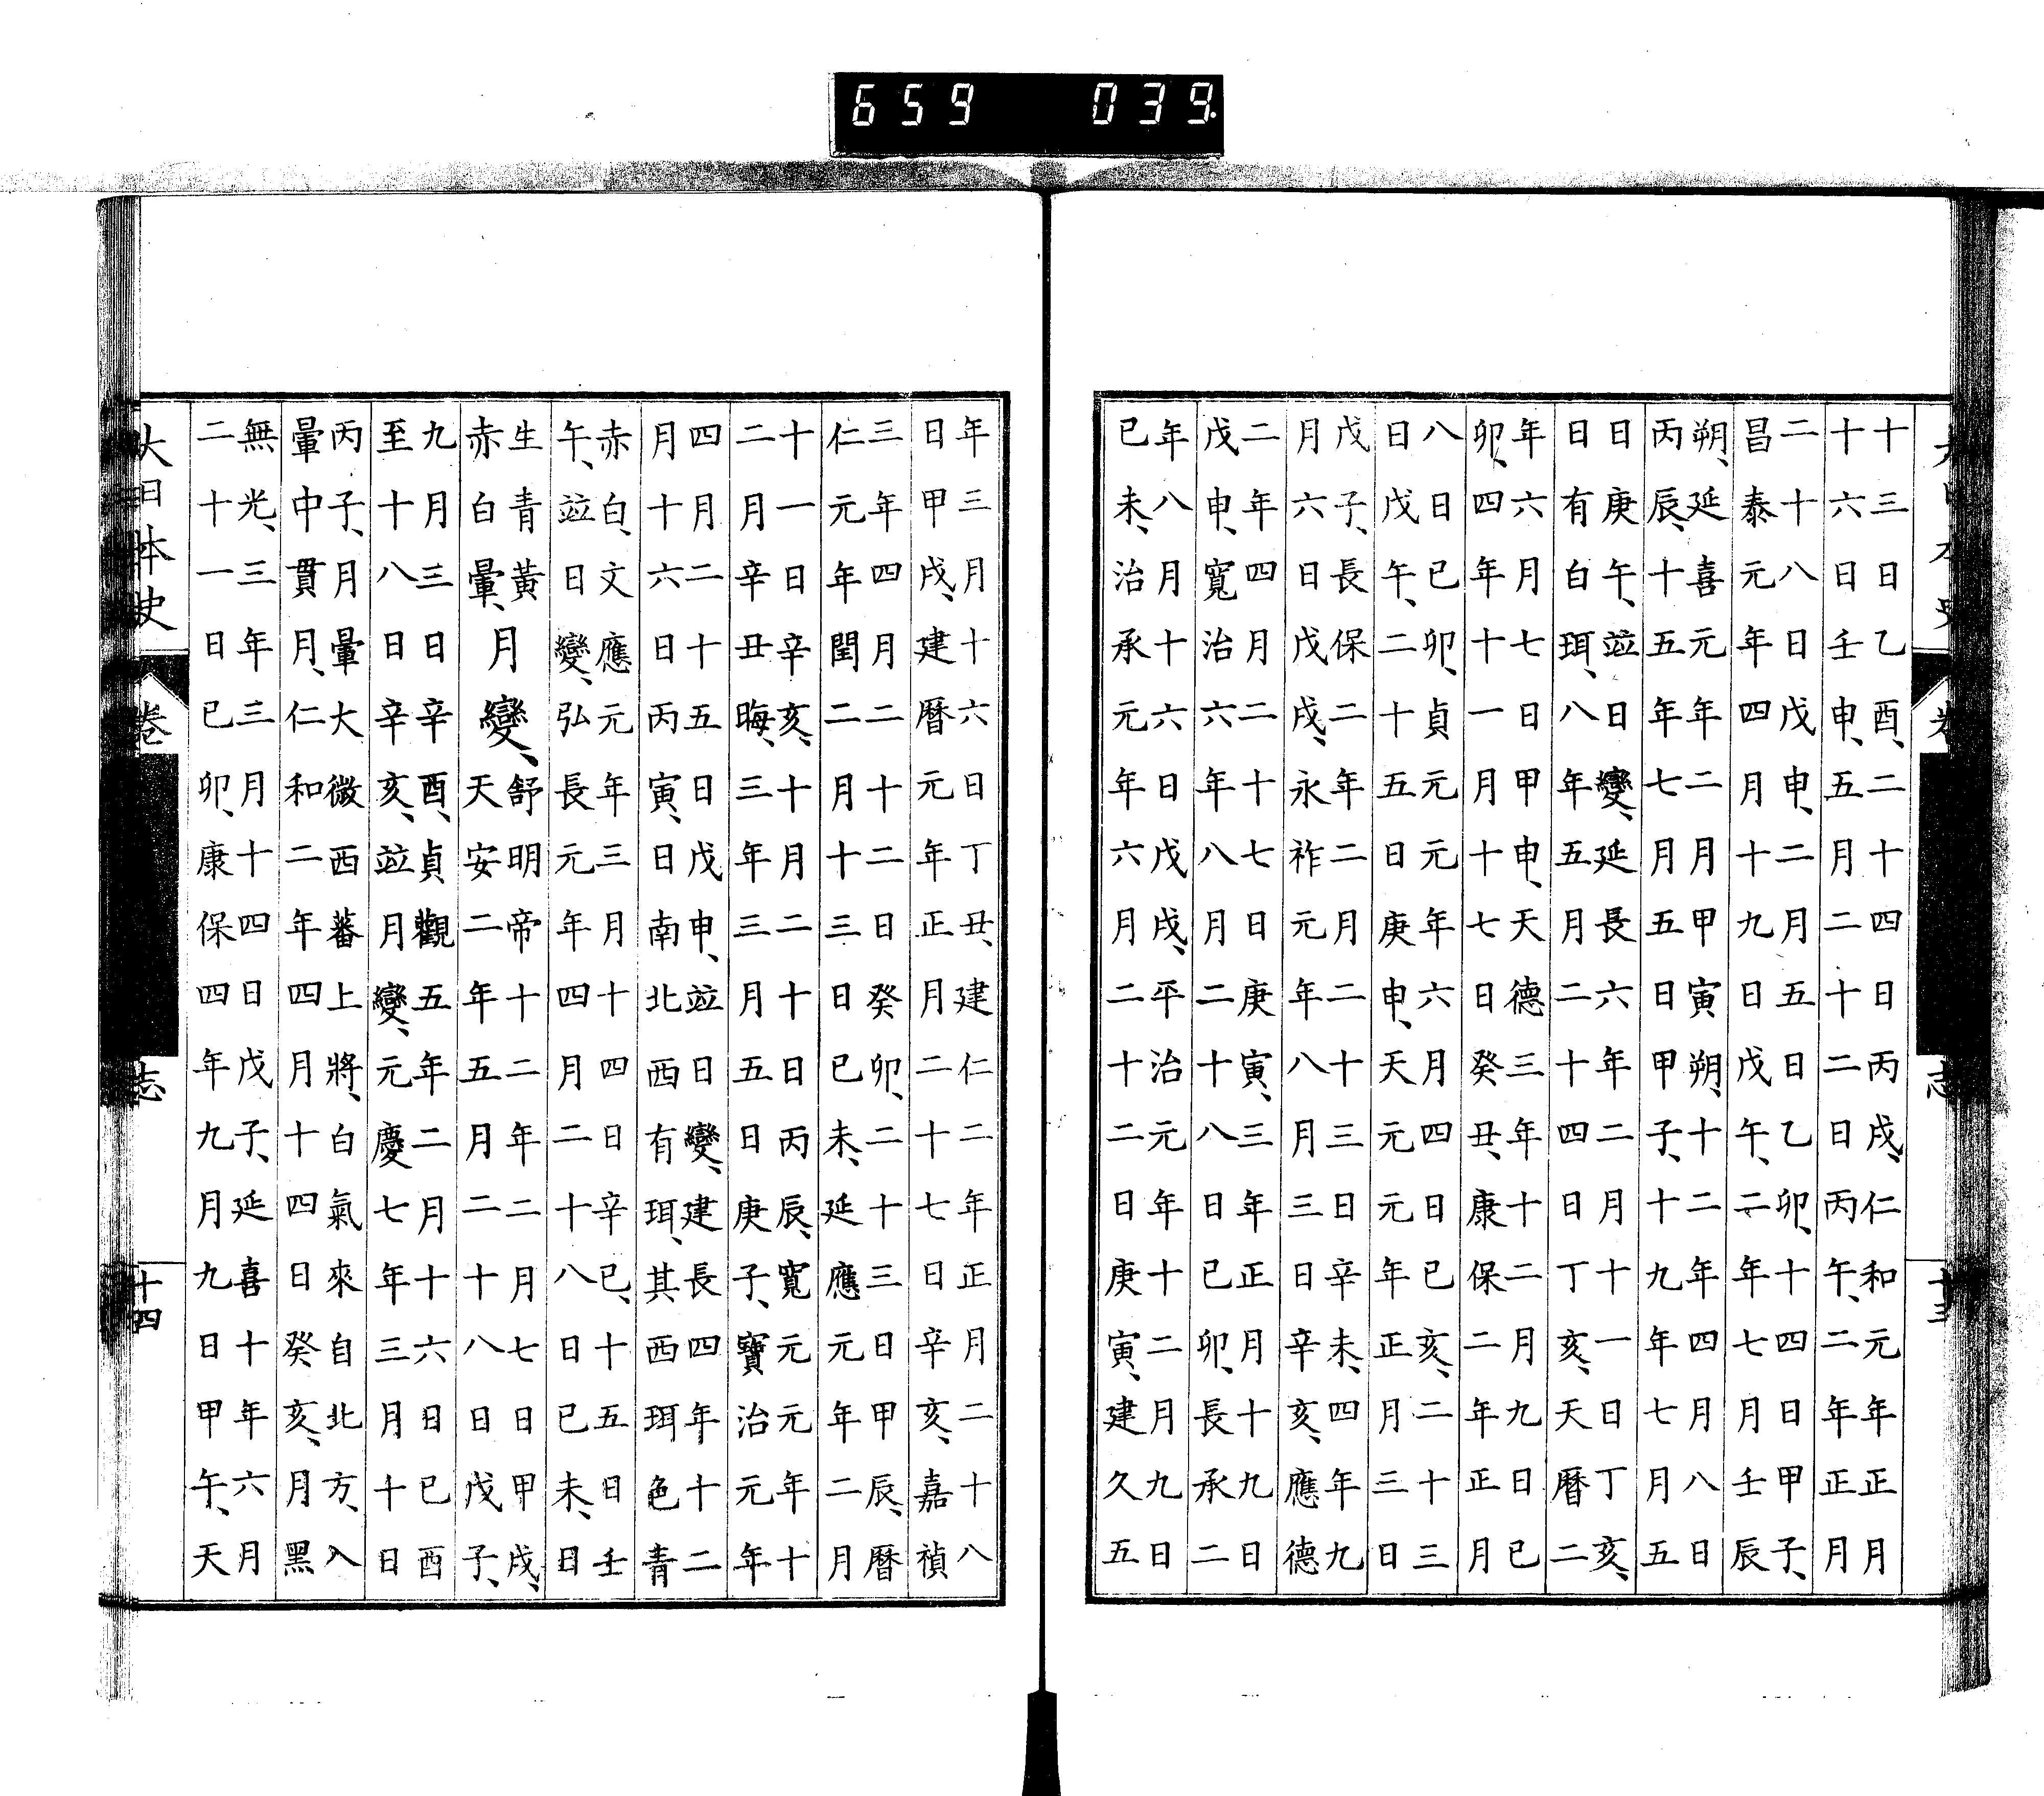 大日本史 卷 志 十三
十三日乙酉、二十四日丙戌、仁和元年正月
十六日壬申、五月二十二日丙午、二年正月
二十八日戊申、二月五日乙卯、十四日甲子、
昌泰元年四月十九日戊午、二年七月壬辰
朔、延喜元年二月甲寅朔、十二年四月八日
丙辰、十五年七月五日甲子、十九年七月五
日庚午、竝日變、延長六年二月十一日丁亥、
日有白珥、八年五月二十四日丁亥、天暦二
年六月七日甲申、天德三年十二月九日已
卯、四年十一月十七日癸丑、康保二年正月
八日已卯、貞元元年六月四日已亥、二十三
日戊午、二十五日庚申、天元元年正月三日
戊子、長保二年二月二十三日辛未、四年九
月六日戊戌、永祚元年八月三日辛亥、應德
二年四月二十七日庚寅、三年正月十九日
戊申、寬治六年八月二十八日已卯、長承二
年八月十六日戊戌、平治元年十二月九日
已未、治承元年六月二十二日庚寅、建久五
年三月十六日丁丑、建仁二年正月二十八
日甲戌、建暦元年正月二十七日辛亥、嘉禎
三年四月二十二日癸卯、二十三日甲辰、暦
仁元年閏二月十三日已未、延應元年二月
十一日辛亥、十月二十日丙辰、寬元元年十
二月辛丑晦、三年三月五日庚子、寶治元年
四月二十五日戊申、竝日變、建長四年十二
月十六日丙寅、日南北西有珥、其西珥色青
赤白、文應元年三月十四日辛已、十五日壬
午、竝日變、弘長元年四月二十八日已未、日
生青黃
赤白暈、
月變、
舒明帝十二年二月七日甲戌、
天安二年五月二十八日戊子、
九月三日辛酉、貞觀五年二月十六日已酉
至十八日辛亥、竝月變、元慶七年三月十日
丙子、月暈大微西蕃上將、白氣來自北方、入
暈中貫月、仁和二年四月十四日癸亥、月黑
無光、三年三月十四日戊子、延喜十年六月
二十一日已卯、康保四年九月九日甲午、天
大日本史 卷 志 十四
659 039